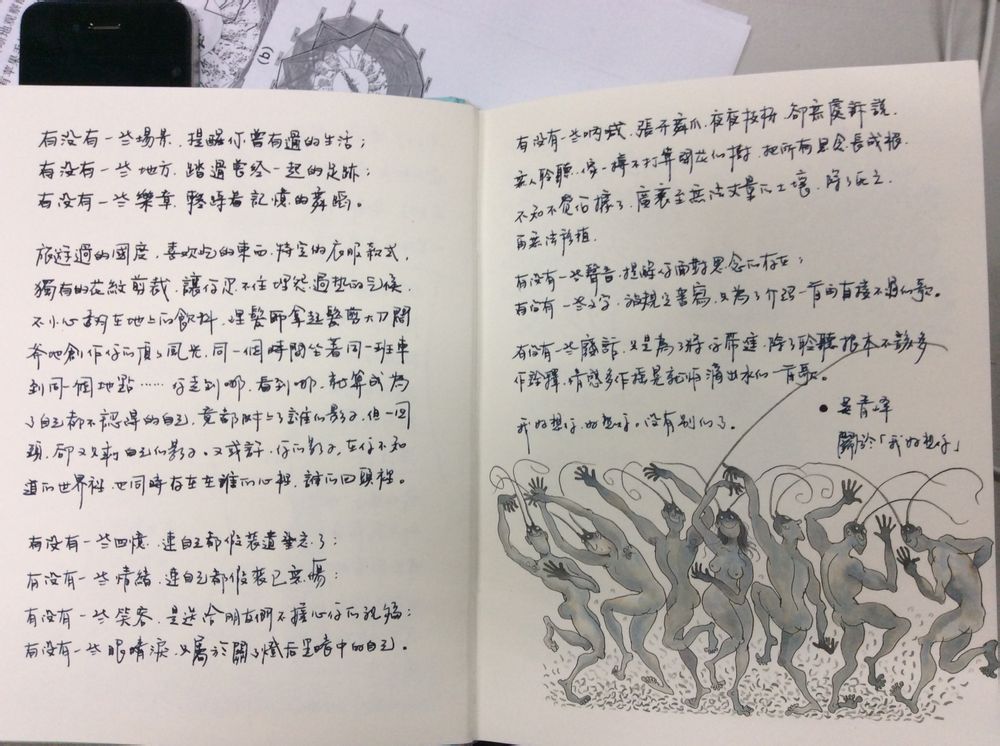 有没有一些場景，提醒你曾有過的生活；
有没有一些地方，踏過曾经一起的足跡；
有没有一些樂章，輕踩着記憶的舞蹈。
旅遊過的國度，喜欢吃的東西，特定的衣服款式，
獨有的花紋剪裁，讓你忍不住埋怨過热的气候，
不小心翻在地上的飲料，理髮師拿起髮剪大刀闊
斧地創作你的頂上風光，同一個時間坐著同一班車
到同一個地點……你走到哪，看到哪，就算成為
了自己都不認得的自己，竟都附上了誰的影子，但一回
頭，卻又見到自己的影子。又或許，你的影子，在你不知
道的世界裡，也同時存在在誰的心裡，誰的回頭裡。
有没有一些回憶，連自己都假装遺棄忘了；
有没有一些情緒，連自己都假裝已無恙；
有没有一些笑容，是送给朋友們不擔心你的祝福；
有没有一些眼睛淚，只屬於關了燈后黑暗中的自己。
有没有一些吶喊，張牙舞爪，夜夜枝枒，卻無處訴說，
無人聆聽，像一棵不打算開花的樹，把所有思念長成根，
不知不覺佔據了，廣袤至無法丈量的土壤，除了死亡，
再無法移植。
有没有一些聲音，提醒你面對思念的存在；
有没有一些文字，被規定書寫，只為了介紹一首再直接不過的歌。
有没有一些廢話，只是為了穿你帶進，除了聆聽根本不該多
作詮釋，情愁多作搖晃就怕滴出水的一首歌。
我好想你，好想你。没有別的了。
● 吴青峰
關於「我好想你」
(b)